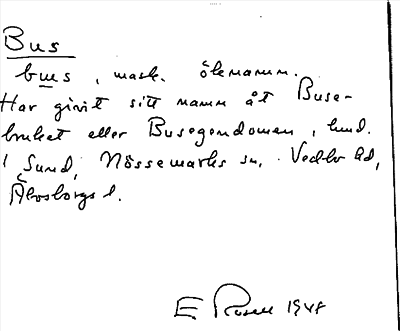 Bus
bus, mask. öknamn.
Har givit sitt namn åt Buse-
bruket eller Busegendomen, hmd.
i Sund, Nössemarks sn, Vedbo hd,
Älvsborgs l.
E Rosell 1948